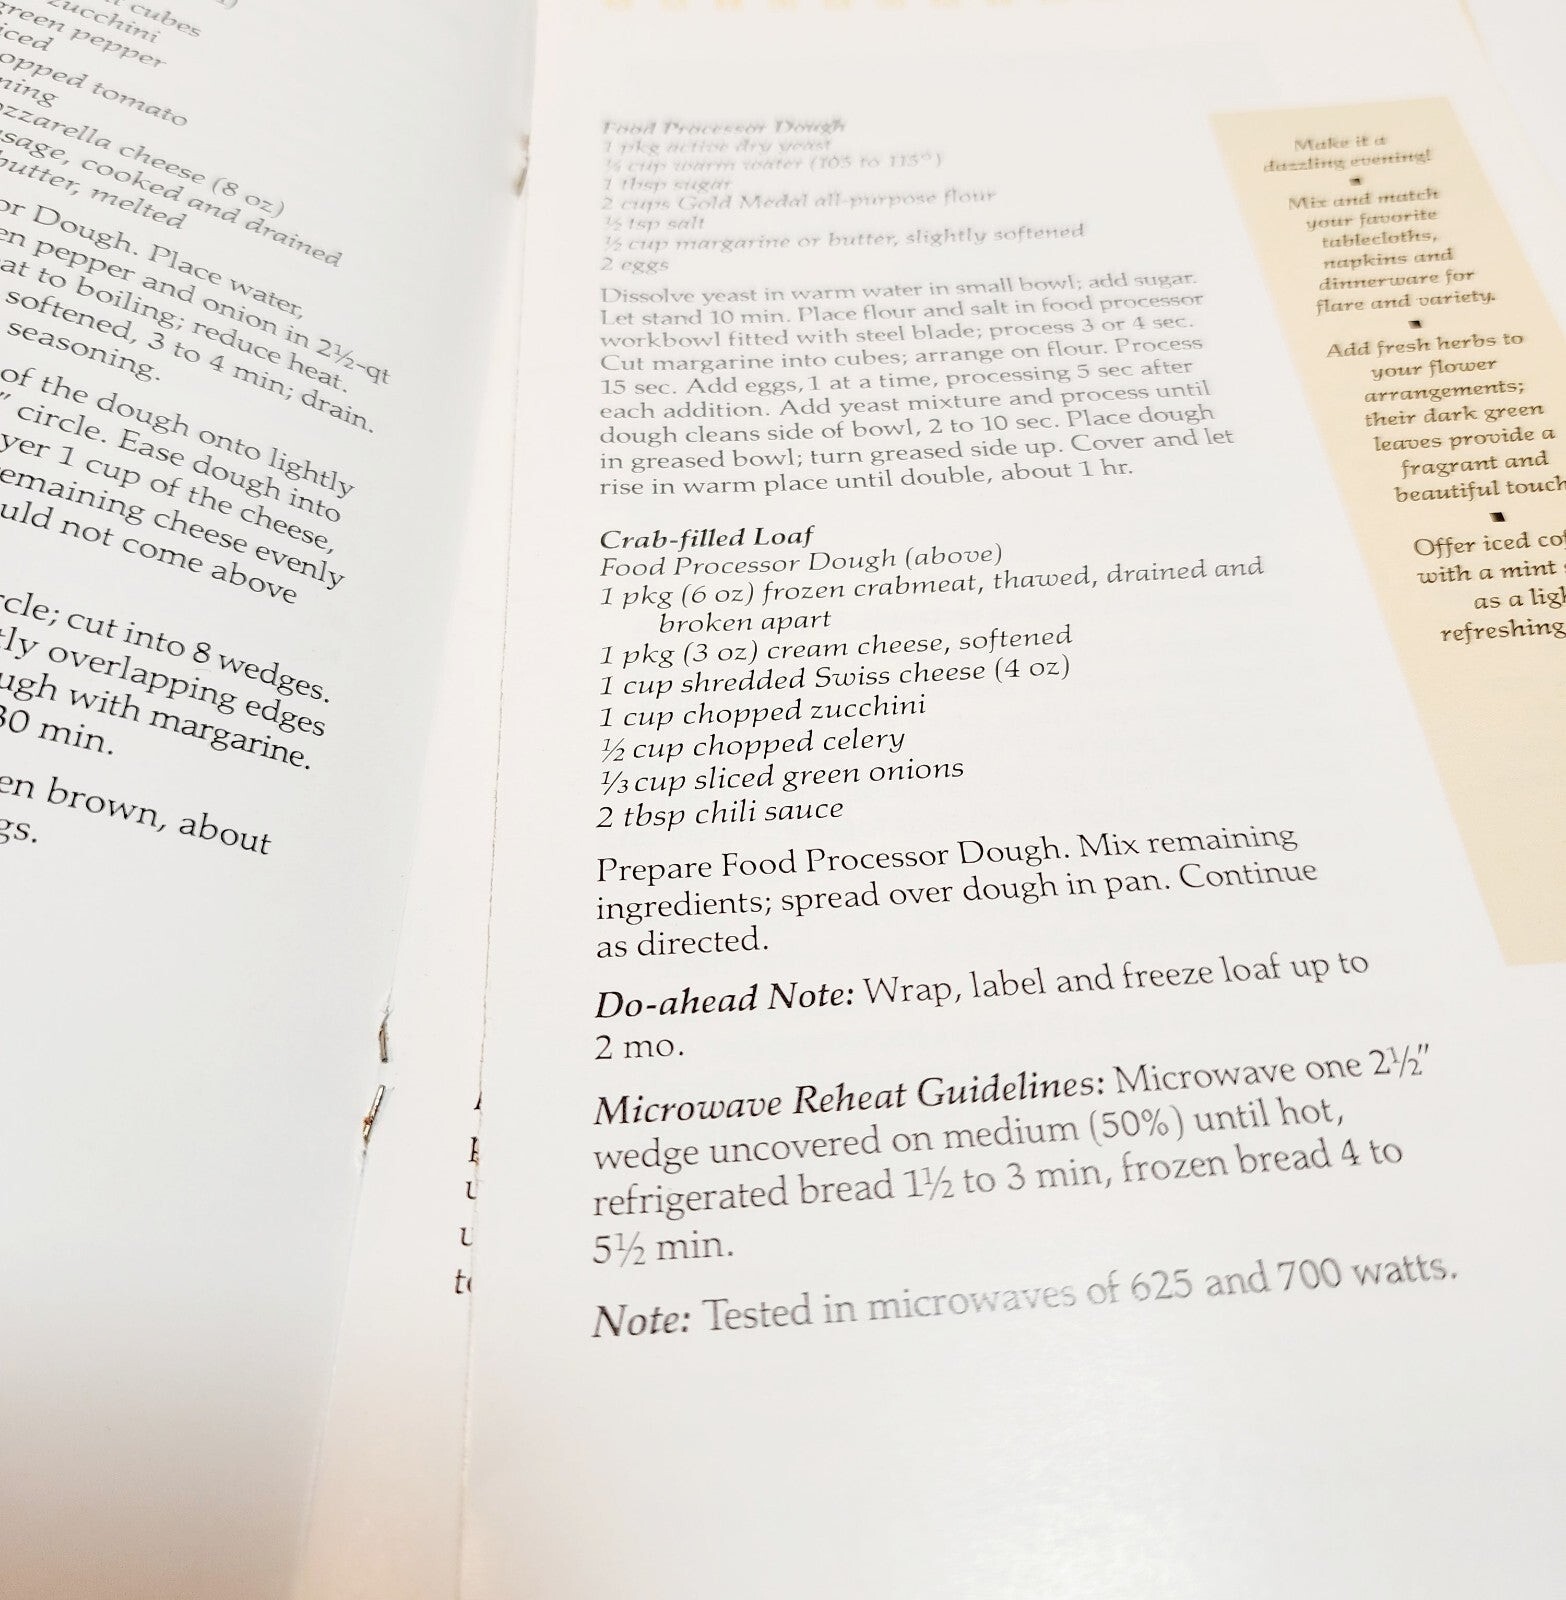 cubes
zucchini
green pepper
opped tomato
ozzarella cheese (8 oz)
sage, cooked and drained
butter, melted
or Dough. Place water,
en pepper and onion in 2½-qt
at to boiling; reduce heat.
softened, 3 to 4 min; drain.
seasoning.
of the dough onto lightly
" circle. Ease dough into
yer 1 cup of the cheese,
remaining cheese evenly
uld not come above
rcle; cut into 8 wedges.
tly overlapping edges
ugh with margarine.
30 min.
en brown, about
gs.
Food Processor Dough
1 pkg active dry yeast
cup warm water (105 to 115°)
1 tbsp sugar
2 cups Gold Medal all-purpose flour
½ tsp salt
cup margarine or butter, slightly softened
2 eggs
Dissolve yeast in warm water in small bowl; add sugar.
Let stand 10 min. Place flour and salt in food processor
workbowl fitted with steel blade; process 3 or 4 sec.
Cut margarine into cubes; arrange on flour. Process
15 sec. Add eggs, 1 at a time, processing 5 sec after
each addition. Add yeast mixture and process until
dough cleans side of bowl, 2 to 10 sec. Place dough
in greased bowl; turn greased side up. Cover and let
rise in warm place until double, about 1 hr.
Crab-filled Loaf
Food Processor Dough (above)
1 pkg (6 oz) frozen crabmeat, thawed, drained and
broken apart
1 pkg (3 oz) cream cheese, softened
1 cup shredded Swiss cheese (4 oz)
1 cup chopped zucchini
½ cup chopped celery
⅓ cup sliced green onions
2 tbsp chili sauce
Prepare Food Processor Dough. Mix remaining
ingredients; spread over dough in pan. Continue
as directed.
Do-ahead Note: Wrap, label and freeze loaf up to
2 mo.
Microwave Reheat Guidelines: Microwave one 2½"
wedge uncovered on medium (50%) until hot,
refrigerated bread 1½ to 3 min, frozen bread 4 to
5½ min.
Note: Tested in microwaves of 625 and 700 watts.
Make it a
dazzling evening!
Mix and match
your favorite
tablecloths,
napkins and
dinnerware for
flare and variety.
Add fresh herbs to
your flower
arrangements;
their dark green
leaves provide a
fragrant and
beautiful touch
Offer iced cof
with a mint
as a lig
refreshing